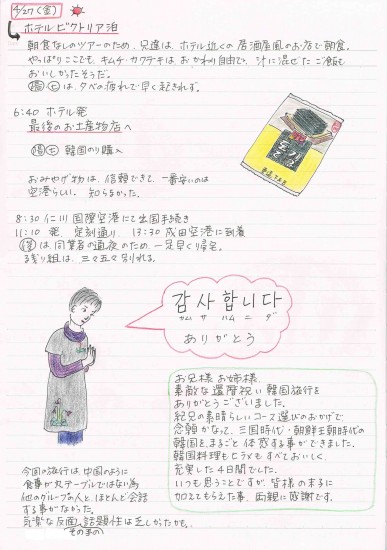 4/27(金)
ホテルビクトリア泊
朝食なしのツアーのため、兄達は ホテル近くの居酒屋風のお店で朝食。
やっぱりここでも、キムチ・カクテキは おかわり自由で、汁に混ぜたご飯も
おいしかったそうだ。
は 夕べの疲れで早く起きれず。
6:40 ホテル発
最後のお土産物店へ
韓国のり購入
おみやげ物は、信頼できて 一番安いのは
空港らしい。知らなかった。
8:30 仁川国際空港にて出国手続き
11:10 発、定刻通り、13:30 成田空港に到着
は 同業者の通夜のため、一足早く帰宅。
残り組は、三々五々別れる。
감사합니다
カム サ ハム ニ ダ
ありがとう
お兄様 お姉様、
素敵な還暦祝い韓国旅行を
ありがとうございました。
紀兄の素晴らしいコース選びのおかげで、
念願かなって、三国時代・朝鮮王朝時代の
韓国を、まるごと 体感する事ができました。
韓国料理もヒラメもすべておいしく、
充実した4日間でした。
いつも思うことですが、皆様の末子に
加えてもらえた事、両親に感謝です。
今回の旅行は、中国のように
食事が丸テーブルではない為
他のグループの人と、ほとんど会話
する事がなかった。
気楽な反面、話題性は乏しかったかも。